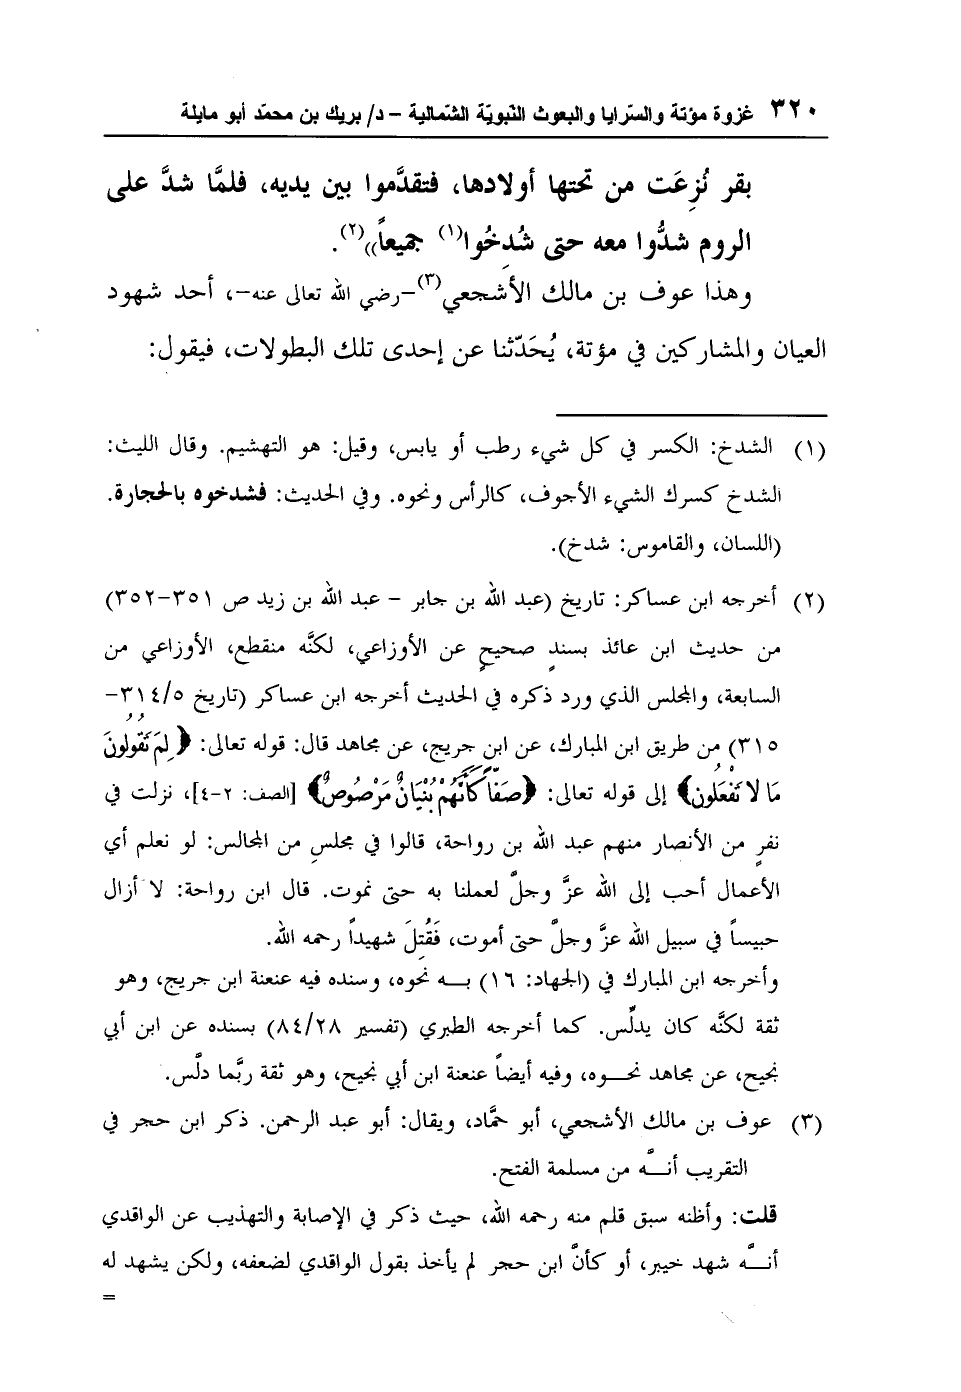 ٣٢٠ غزوة مؤتة والسّرايا والبعوث النّبويّة الشّمالية – د/ بريك بن محمّد أبو مايلة
بقر نُزِعَت من تحتها أولادها، فتقدَّموا بين يديه، فلمَّا شدَّ على
الروم شدُّوا معه حتى شُدِخُوا(١) جميعاً))(٢).
وهذا عوف بن مالك الأشجعي(٣)–رضي الله تعالى عنه–، أحد شهود
العيان والمشاركين في مؤتة، يُحَدّثنا عن إحدى تلك البطولات، فيقول:
(١) الشدخ: الكسر في كل شيء رطب أو يابس، وقيل: هو التهشيم. وقال الليث:
الشدخ كسرك الشيء الأجوف، كالرأس ونحوه. وفي الحديث: فشدخوه بالحجارة.
(اللسان، والقاموس: شدخ).
(٢) أخرجه ابن عساكر: تاريخ (عبد الله بن جابر – عبد الله بن زيد ص ٣٥١–٣٥٢)
من حديث ابن عائذ بسندٍ صحيحٍ عن الأوزاعي، لكنَّه منقطع، الأوزاعي من
السابعة، والمجلس الذي ورد ذكره في الحديث أخرجه ابن عساكر (تاريخ ٣١٤/٥–
٣١٥) من طريق ابن المبارك، عن ابن جريج، عن مجاهد قال: قوله تعالى: ﴿لِمَ تَقُولُونَ
مَا لَا تَفْعَلُونَ﴾ إلى قوله تعالى: ﴿صَفًّا كَأَنَّهُمْ بُنْيَانٌ مَرْصُوصٌ﴾ [الصف: ٢–٤]، نزلت في
نفرٍ من الأنصار منهم عبد الله بن رواحة، قالوا في مجلسٍ من المجالس: لو نعلم أي
الأعمال أحب إلى الله عزَّ وجلَّ لعملنا به حتى نموت. قال ابن رواحة: لا أزال
حبيساً في سبيل الله عزَّ وجلَّ حتى أموت، فَقُتِلَ شهيداً رحمه الله.
وأخرجه ابن المبارك في (الجهاد: ١٦) بـــه نحوه، وسنده فيه عنعنة ابن جريج، وهو
ثقة لكنَّه كان يدلّس. كما أخرجه الطبري (تفسير ٨٤/٢٨) بسنده عن ابن أبي
نجيح، عن مجاهد نحـــوه، وفيه أيضاً عنعنة ابن أبي نجيح، وهو ثقة ربَّما دلَّس.
(٣) عوف بن مالك الأشجعي، أبو حمَّاد، ويقال: أبو عبد الرحمن. ذكر ابن حجر في
التقريب أنـَّـه من مسلمة الفتح.
قلت: وأظنه سبق قلم منه رحمه الله، حيث ذكر في الإصابة والتهذيب عن الواقدي
أنـَّـه شهد خيبر، أو كأنَّ ابن حجر لم يأخذ بقول الواقدي لضعفه، ولكن يشهد له
=